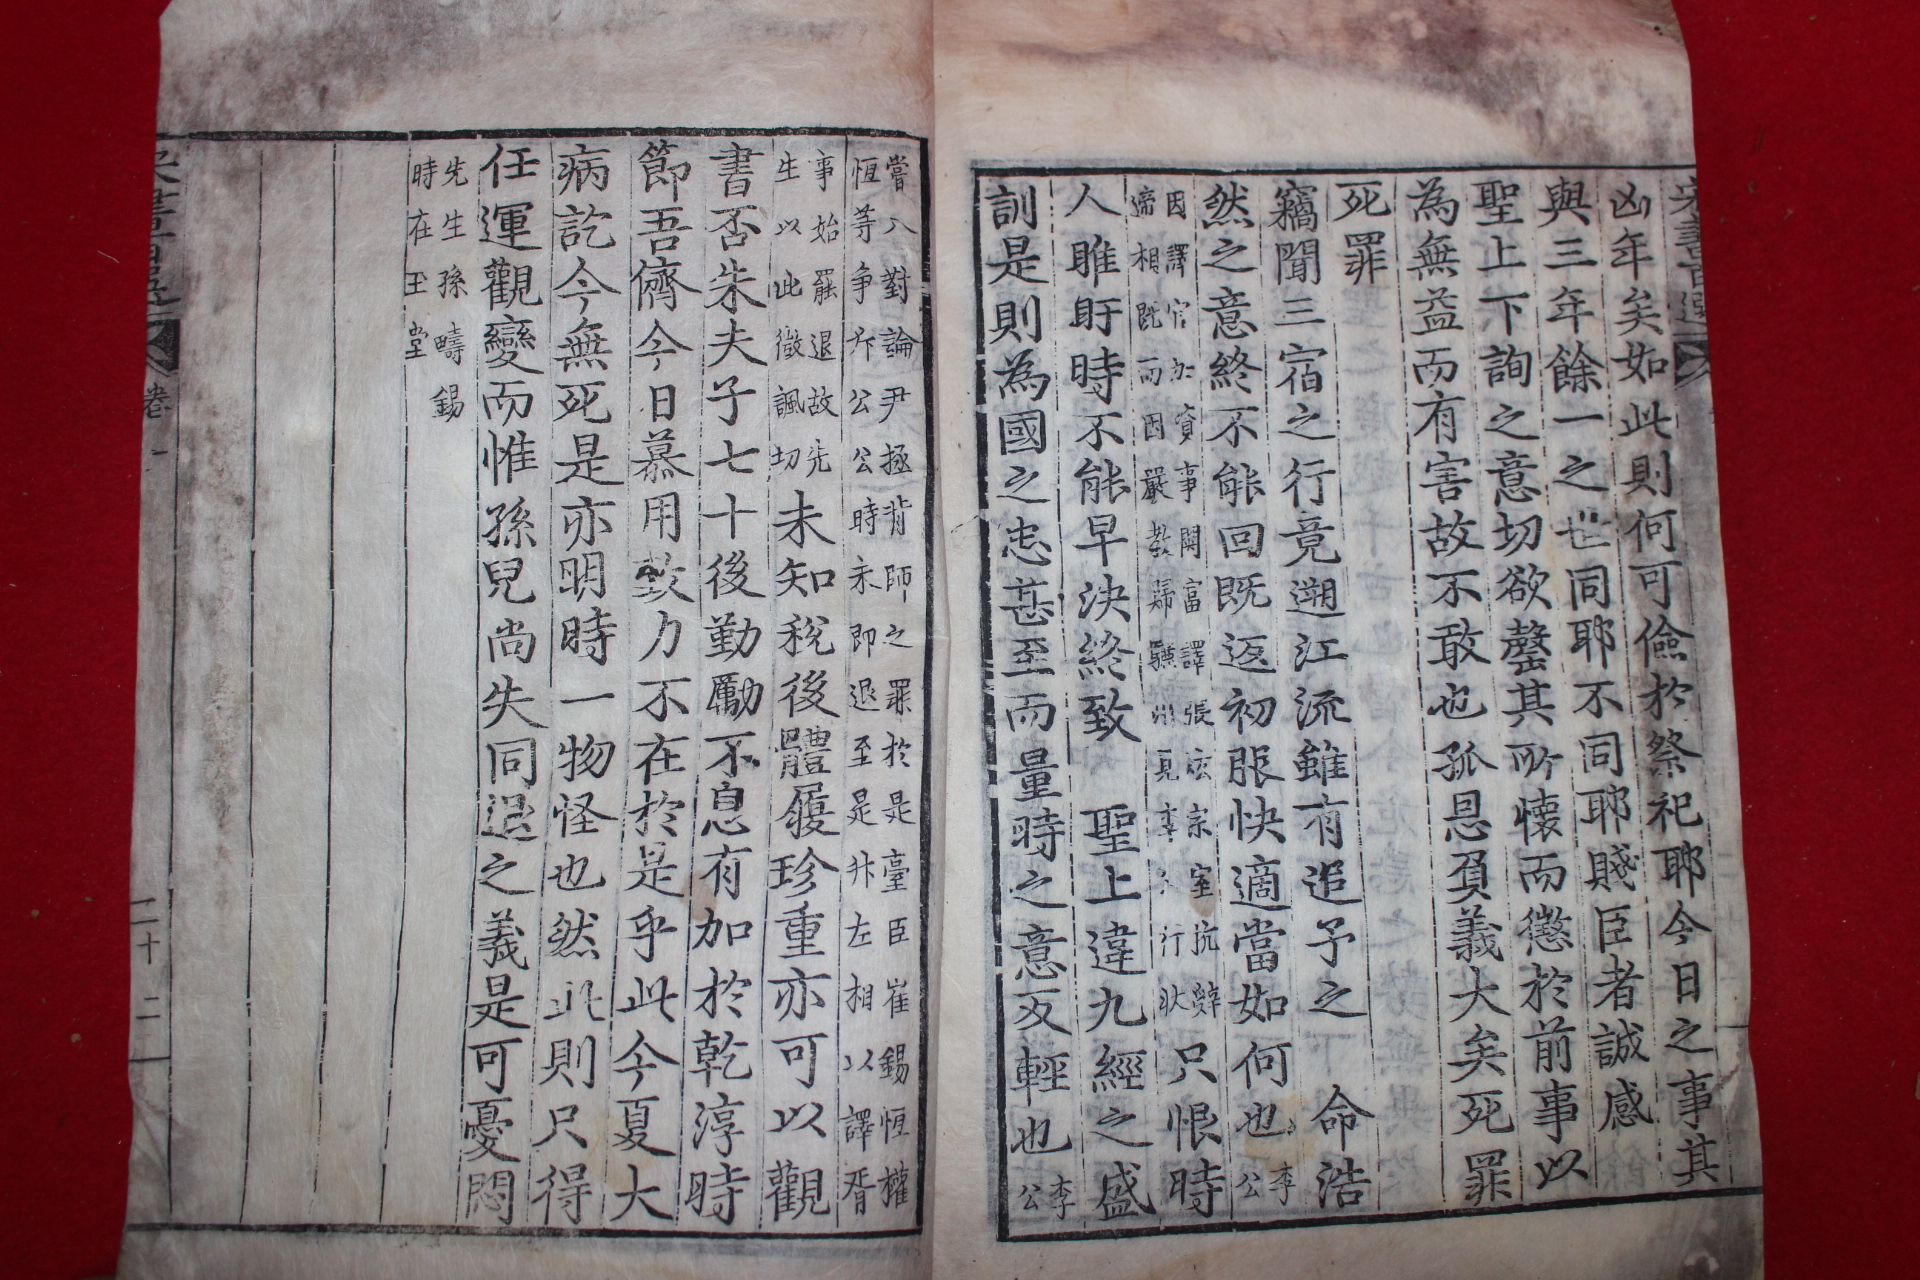 宋書百選
凶年矣如此則何可儉於祭祀耶今日之事其
與三年餘一之世同耶不同耶賤臣者誠感
聖上下詢之意切欲罄其所懷而懲於前事以
為無益而有害故不敢也孤恩負義大矣死罪
死罪
竊聞三宿之行竟遡江流雖有追予之 命浩
然之意終不能回既返初服快適當如何也李公
因譯官加資事閔富譯張炫宗室杭辭
啇相既而因嚴教歸驪州見李 行狀
只恨時
人睢盱時不能早決終致 聖上違九經之盛
訓是則為國之忠甚至而量時之意反輕也李公
嘗八對論尹拯背師之罪於是臺臣崔錫恒權
恒等爭斥公公時未即退至是拜左相以譯胥
事始罷退故先
生以此微諷切
未知稅後體履珍重亦可以觀
書否朱夫子七十後勤勵不息有加於乾淳時
節吾儕今日慕用致力不在於是乎此今夏大
病訖今無死是亦明時一物怪也然此則只得
任運觀變而惟孫兒尚失同退之義是可憂悶
先生孫疇錫
時在玉堂
卷
二十二